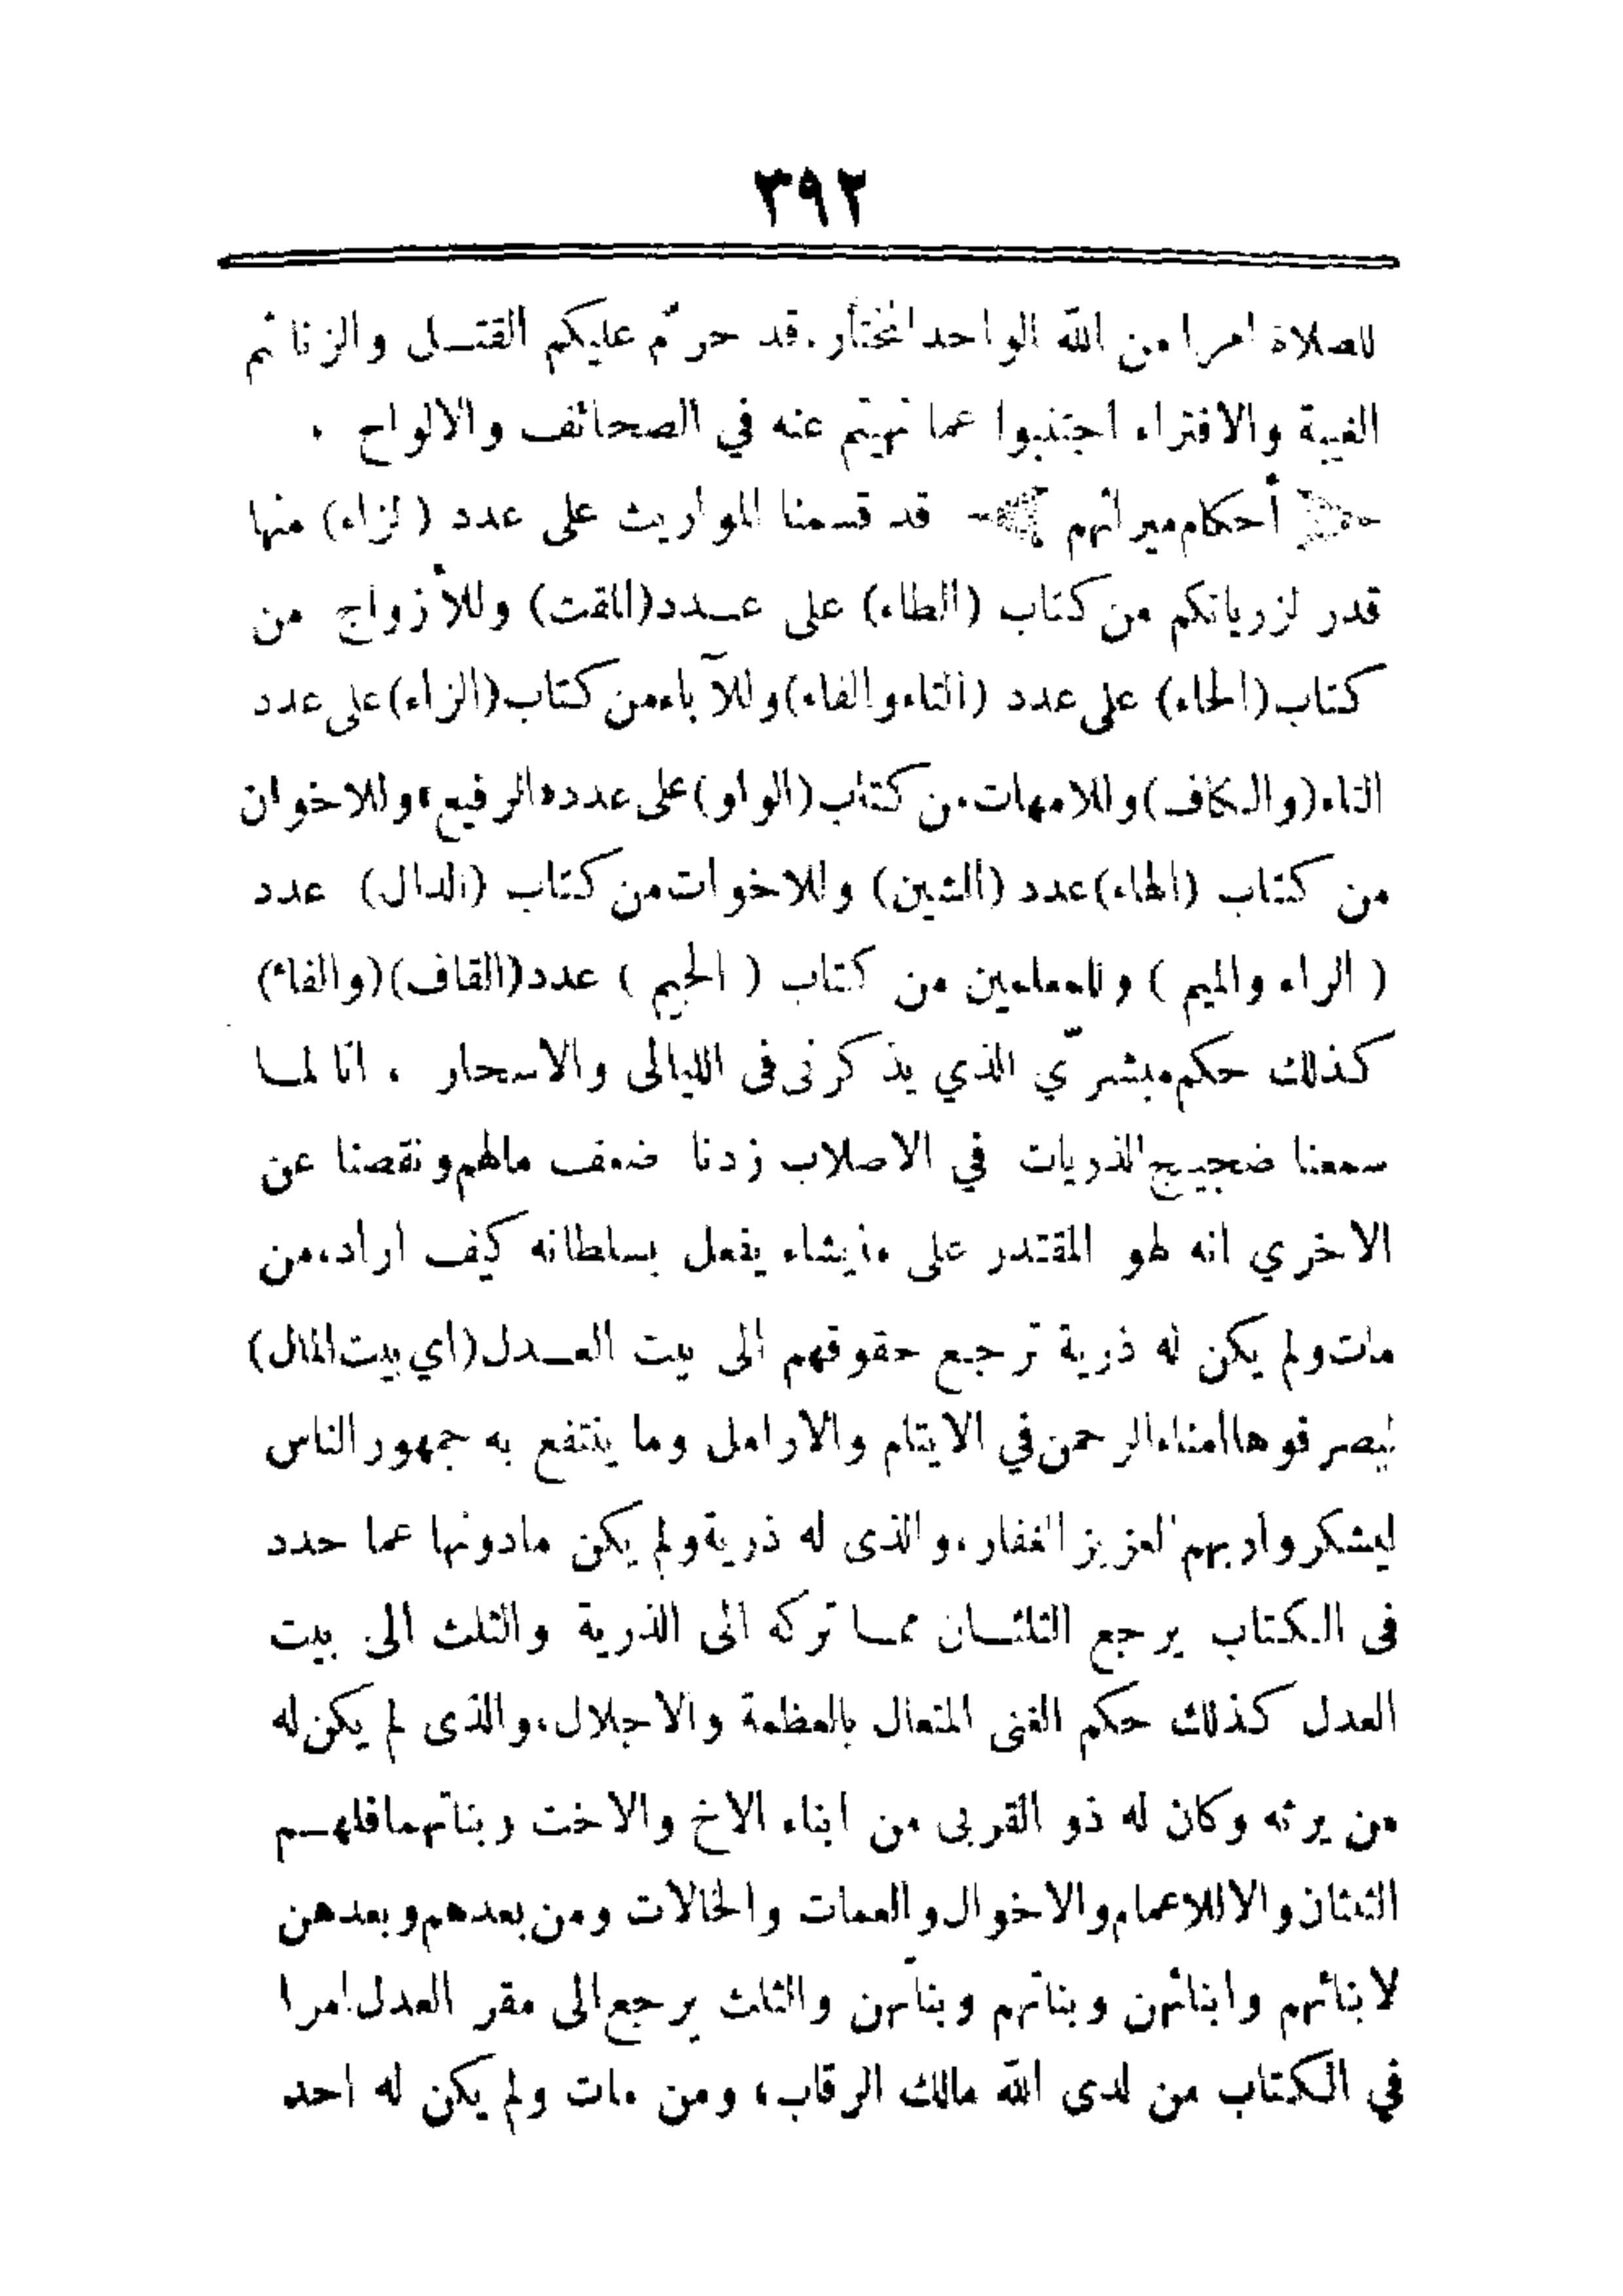 ٣٩٢
للصلاة امرا من الله الواحد المختار. قد حرّم عليكم القتـــل والزنا ثم
الغيبة والافتراء اجتنبوا عما نهيتم عنه في الصحائف والالواح .
أحكام ميراثهم قد قسمنا المواريث على عدد (لزاء) منها
قدر لزرياتكم من كتاب (الطاء) على عـــدد (المقت) وللأزواج من
كتاب (الحاء) على عدد (التاء والفاء) وللآباء من كتاب (الزاء) على عدد
التاء (والكاف) وللامهات من كتاب (الواو) على عدد «الرفيع» وللاخوان
من كتاب (الهاء) عدد (الشين) وللاخوات من كتاب (الدال) عدد
( الراء والميم ) وللمعلمين من كتاب ( الجيم ) عدد (القاف) (والفاء)
كذلك حكم مبشرّي الذي يذكرنى فى الليالى والاسحار . انا لمـا
سمعنا ضجيج الذريات في الاصلاب زدنا ضعف مالهم ونقصنا عن
الاخري انه لهو المقتدر على مايشاء يفعل بسلطانه كيف اراد، من
مات ولم يكن له ذرية ترجع حقوقهم الى بيت العـــدل (اي بيت المال)
ليصرفوها امناء الرحمن في الايتام والارامل وما ينتفع به جمهور الناس
ليشكروا ربهم العزيز الغفار، والذى له ذرية ولم يكن مادونها عما حدد
فى الكتاب يرجع الثلثـــان ممـا تركه الى الذرية والثلث الى بيت
العدل كذلك حكم الغنى المتعال بالعظمة والاجلال، والذى لم يكن له
من يرثه وكان له ذو القربى من ابناء الاخ والاخت وبناتهما فلهـــم
الثلثان والا للاعمام والاخوال والعمات والخالات ومن بعدهم وبعدهن
لابنائهم وابنائهن وبناتهم وبناتهن والثلث يرجع الى مقر العدل امرا
في الكتاب من لدى الله مالك الرقاب، ومن مات ولم يكن له احد